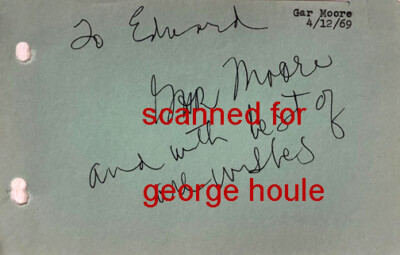 Gar Moore
4/12/69
To Edward
Gar Moore
scanned for
and with best of
wishes
george houle